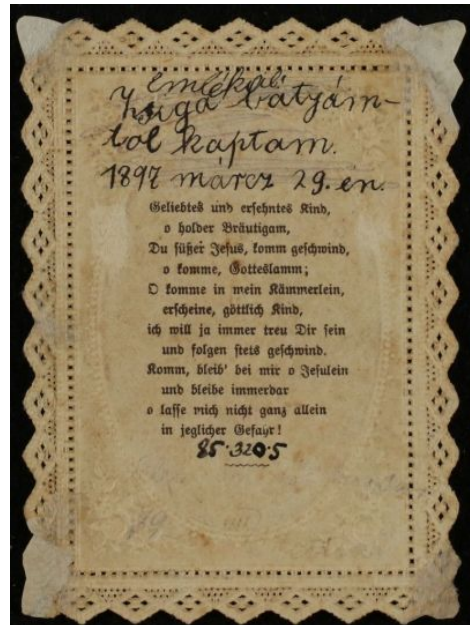 emlékül
Zsiga bátyám-
tol kaptam.
1897 márcz 29.-én.
Geliebtes und ersehntes Kind,
o holder Bräutigam,
Du süßer Jesus, komm geschwind,
o komme, Gotteslamm;
O komme in mein Kämmerlein,
erscheine, göttlich Kind,
ich will ja immer treu Dir sein
und folgen stets geschwind.
Komm, bleib' bei mir o Jesulein
und bleibe immerdar
o lasse mich nicht ganz allein
in jeglicher Gefahr!
85.320.5